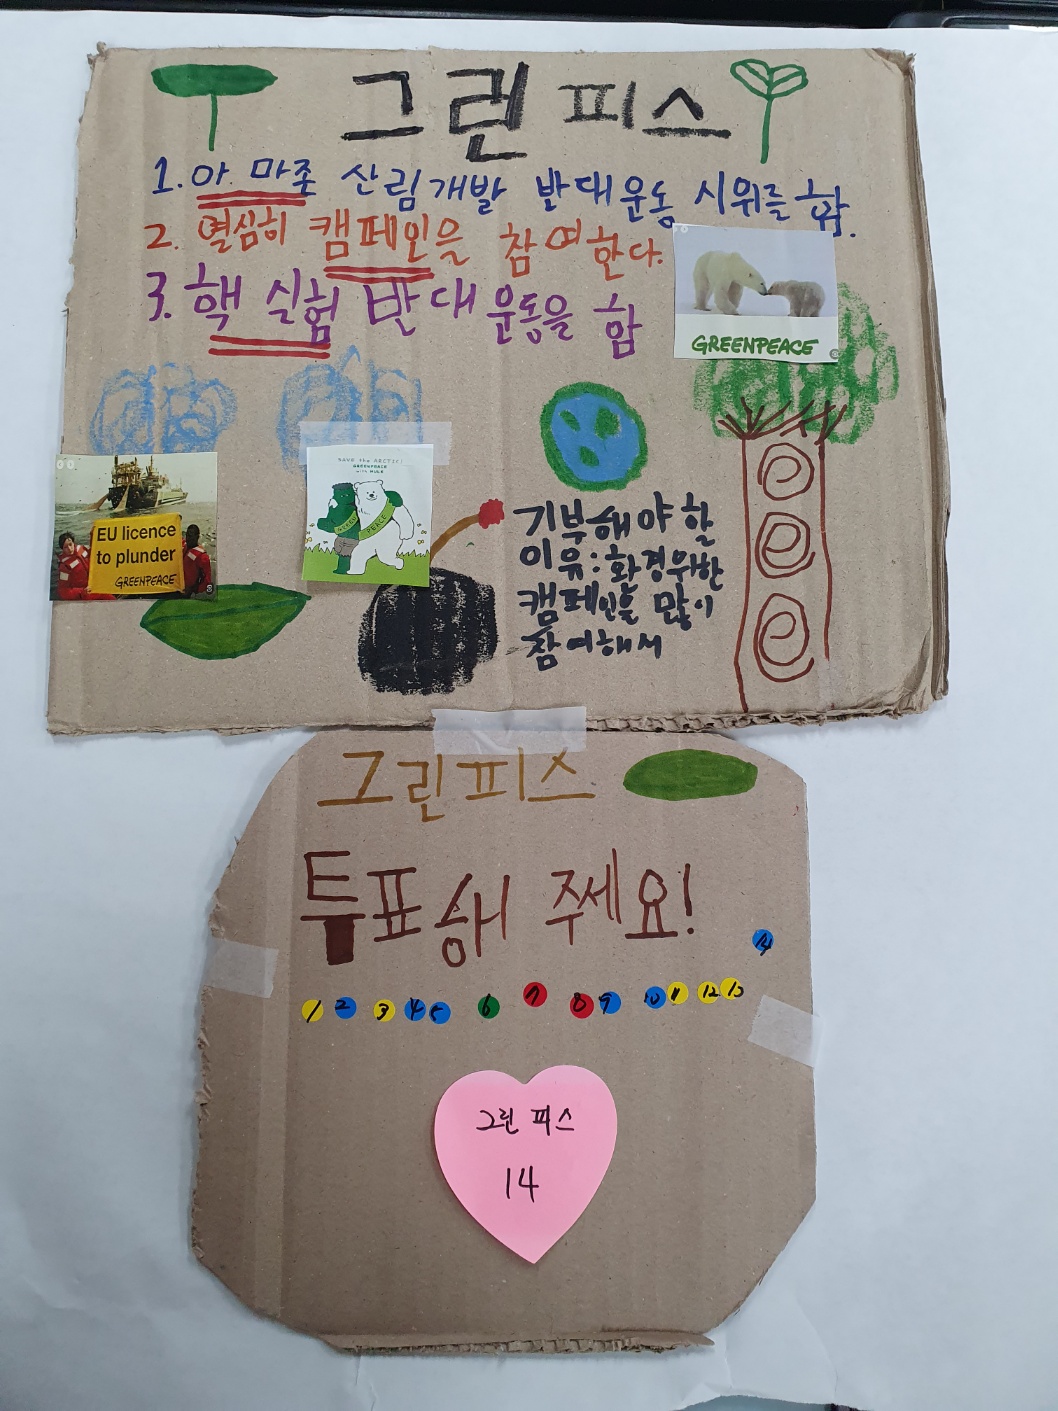 그린피스
1. 아마존 산림개발 반대운동 시위를 함.
2. 열심히 캠페인을 참여한다.
3. 핵 실험 반대 운동을 함
GREENPEACE
EU licence
to plunder
GREENPEACE
SAVE the ARCTIC!
GREENPEACE
with HULK
PEACE
기부해야 할
이유: 환경위한
캠페인을 많이
참여해서
그린피스
투표해 주세요!
14
1 2 3 4 5 6 7 8 9 10 11 12 13
그린 피스
14